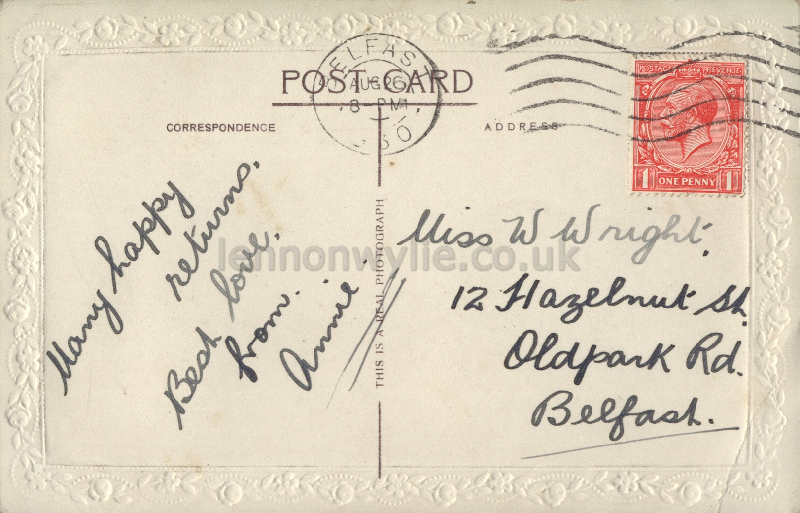 BELFAST
AUG 26
8 - PM
POST CARD
CORRESPONDENCE
ADDRESS
POSTAGE REVENUE
1 ONE PENNY 1
Many happy
returns.
Best love
from.
Annie
THIS IS A REAL PHOTOGRAPH
Miss W Wright
12 Hazelnut St.
Oldpark Rd.
Belfast.
lennonwylie.co.uk